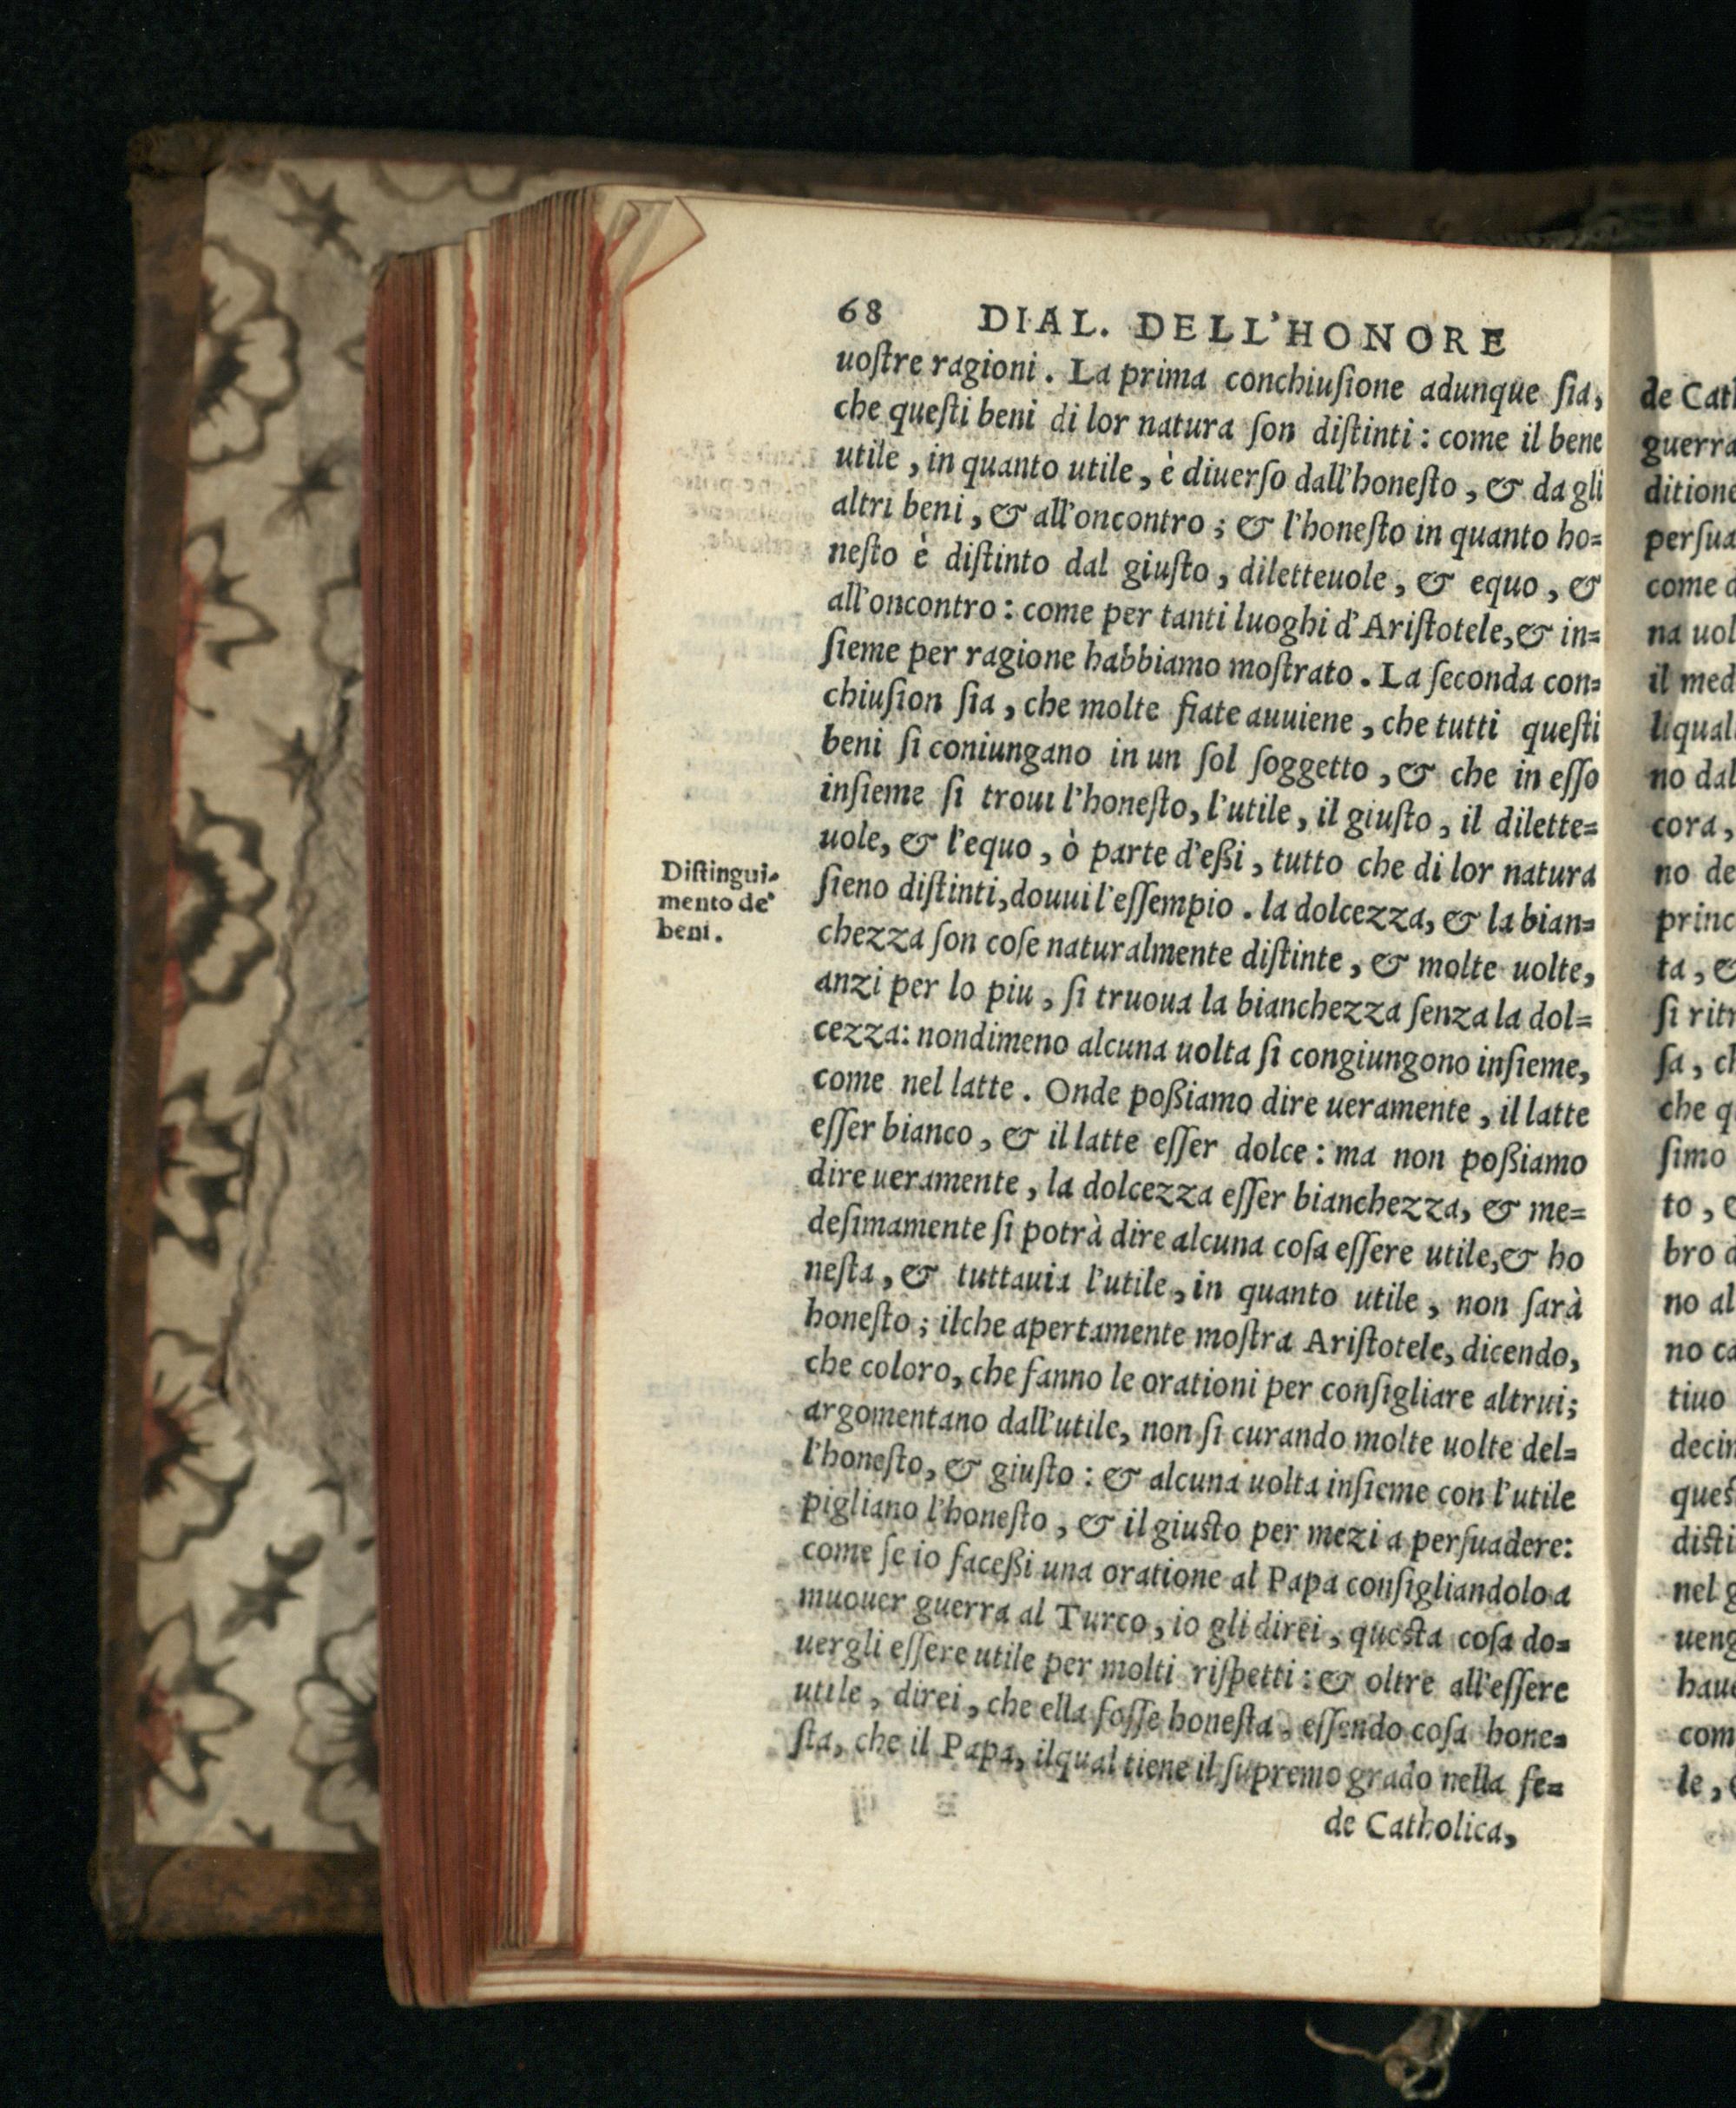 68 DIAL. DELL'HONORE
uoſtre ragioni. La prima conchiuſione adunque ſia,
che queſti beni di lor natura ſon diſtinti: come il bene
utile, in quanto utile, è diuerſo dall'honeſto, & da gli
altri beni, & all'oncontro; & l'honeſto in quanto ho=
neſto è diſtinto dal giuſto, diletteuole, & equo, &
all'oncontro: come per tanti luoghi d'Ariſtotele,& in=
ſieme per ragione habbiamo moſtrato. La ſeconda con=
chiuſion ſia, che molte fiate auuiene, che tutti queſti
beni ſi coniungano in un ſol ſoggetto, & che in eſſo
inſieme ſi troui l'honeſto, l'utile, il giuſto, il dilette=
uole, & l'equo, ò parte d'eßi, tutto che di lor natura
ſieno diſtinti,douui l'eſſempio. la dolcezza, & la bian=
chezza ſon coſe naturalmente diſtinte, & molte uolte,
anzi per lo piu, ſi truoua la bianchezza ſenza la dol=
cezza: nondimeno alcuna uolta ſi congiungono inſieme,
come nel latte. Onde poßiamo dire ueramente, il latte
eſſer bianco, & il latte eſſer dolce: ma non poßiamo
dire ueramente, la dolcezza eſſer bianchezza, & me=
deſimamente ſi potrà dire alcuna coſa eſſere utile,& ho
neſta, & tuttauia l'utile, in quanto utile, non ſarà
honeſto; ilche apertamente moſtra Ariſtotele, dicendo,
che coloro, che fanno le orationi per conſigliare altrui;
argomentano dall'utile, non ſi curando molte uolte del=
l'honeſto, & giuſto: & alcuna uolta inſieme con l'utile
pigliano l'honeſto, & il giusto per mezi a perſuadere:
come ſe io faceßi una oratione al Papa conſigliandolo a
muouer guerra al Turco, io gli direi, questa coſa do=
uergli eſſere utile per molti riſpetti: & oltre all'eſſere
utile, direi, che ella foſſe honeſta, eſſendo coſa hone=
ſta, che il Papa, ilqual tiene il ſupremo grado nella fe=
de Catholica,
Diſtingui-
mento de'
beni.
de Cath
guerra
ditione
perſua
come d
na uol
il med
liquali
no dal
cora,
no de
princ
ta, &
ſi ritr
ſa, ch
che q
ſimo
to, e
bro d
no al
no ca
tiuo
decim
ques
disti
nel g
ueng
haue
com
le,